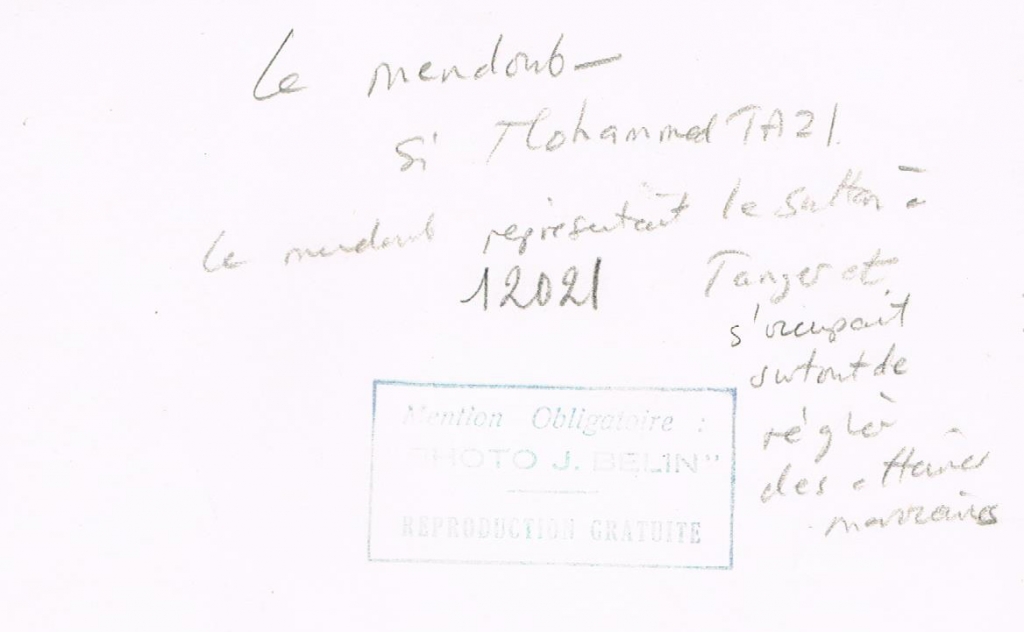 Le mendoub
Si Mohammed TAZI.
Le mendoub représentait le sultan à
Tanger et
12021
s'occupait
surtout de
régler
des affaires
marocaines
Mention Obligatoire :
"PHOTO J. BELIN"
REPRODUCTION GRATUITE